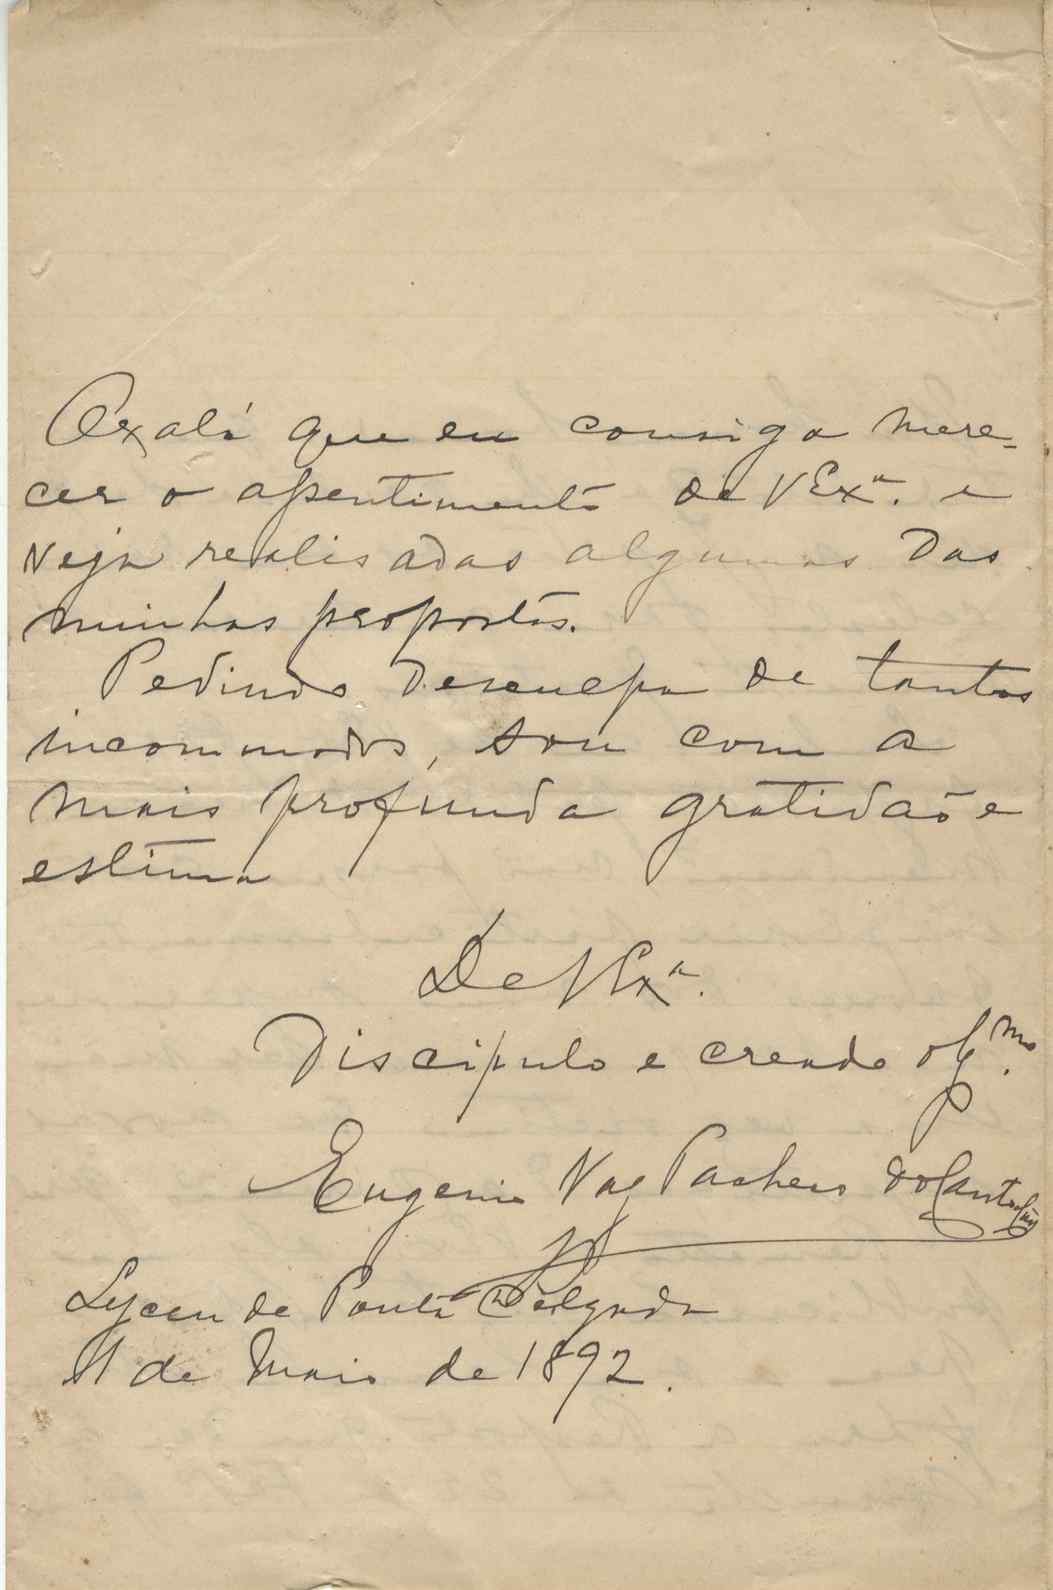 Oxalá que eu consiga mere-
cer o assentimento de V Exª. e
veja realisadas algumas das
minhas propostas.
Pedindo desculpa de tantos
incommodos, sou com a
mais profunda gratidão e
estima
De V Exª.
Discipulo e creado obgmo.
Eugenio Vaz Pacheco do Canto
Lyceu de Ponta Delgada
11 de Maio de 1892.